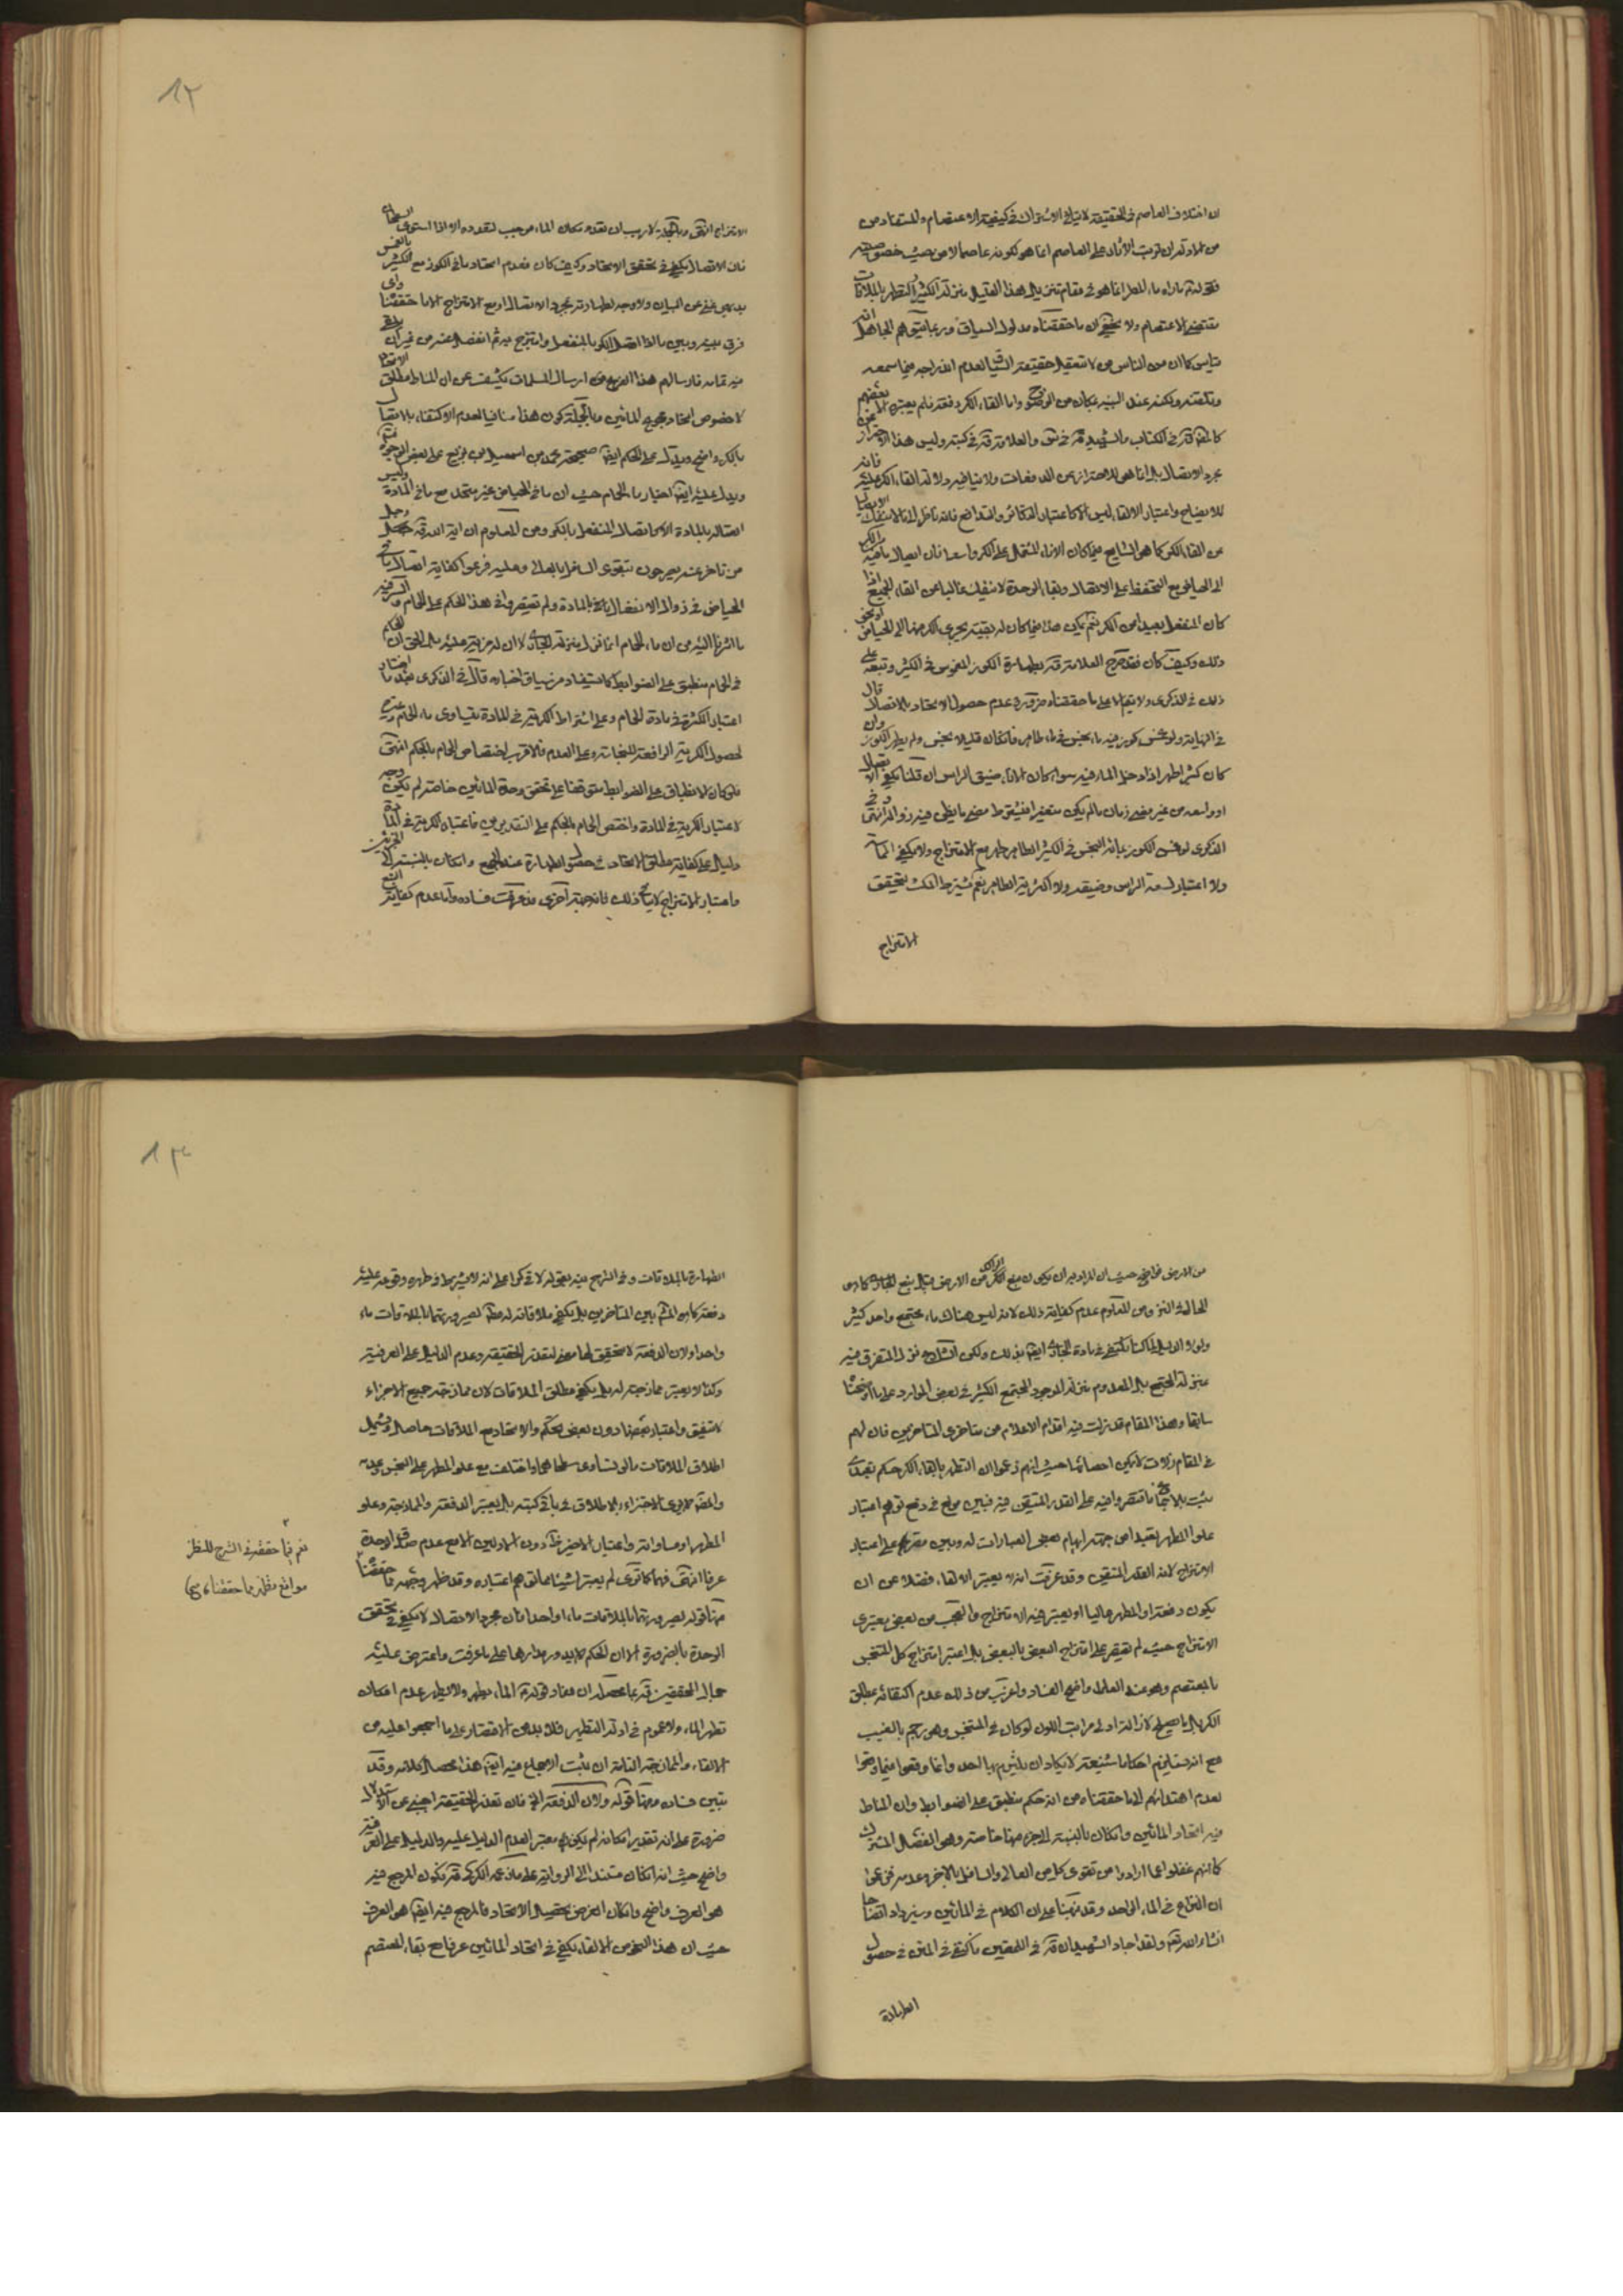 ان اختلاف العاصم في الحقيقة لا ينافي الاشتراك في كيفية الاعتصام والمستفاد من
من ادلته ان ترتب الآثار على العاصم انما هو لكونه عاصما لا من حيث خصوصيته
يقتضي الاعتصام ولا يخفى ان ما حققناه مدلول السياق وربما يتوهم الجاهل انه
قياس كما ان من الناس من لا تعقل حقيقة الشيء لعدم اندراجه فيما سمعه
مجرد الاتصال بل انما هي للاحتراز عن الدفعات ولا ينافيه ولا لقاء الكر
من القاء الكر كما هو الشايع فيما كان الاناء المشتمل على الكر واسعا فان ايصال ما فيه
الى الحياض مع التحفظ على الاتصال وبقاء الوحدة لا ينفك غالبا عن القاء الجميع
ذلك وكيف كان فقد صرح العلامة قده بطهارة الكوز المغموس في الكثير وتبعه على
ذلك في الذكرى ولا يتم الا على ما حققناه من عدم حصول الاتحاد بالاتصال قال
في النهاية ولو غمس كوز فيه ماء نجس في ماء طاهر فان كان قليلا نجس ولم يطهر الكوز وان
كان كثيرا طهر اذا دخل الماء فيه سواء كان الاناء ضيق الراس ان قلنا يكفي الاتصال
او واسعه من غير مضي زمان ما لم يكن متغيرا فيشترط مضي ما يظن فيه زواله انتهى وفي
الذكرى لو غمس الكوز بمائه النجس في الكثير الطاهر طهر مع الامتزاج ولا يكفي المماسة
ولا اعتبار لسعة الراس وضيقه ولا اكثرية الطاهر نعم يشترط المكث ليتحقق
الامتزاج
١٢
الامتزاج انتهى وبالجملة لا ريب ان تعدد مكان الماء موجب لتعدده الا اذا استوى السطحان
فان الاتصال يكفي في تحقق الاتحاد وكيف كان فعدم اتحاد ماء الكوز مع الكثير بالغمس
بديهي غني عن البيان ولا وجه لطهارته بمجرد الاتصال او مع الامتزاج الا ما حققنا واي
فرق بينه وبين ما اذا اتصل الكر بالمنفعل وامتزج به ثم انفصل عنه من غير ان يلقى
فيه بتمامه فارسالهم هذا الفرع ارسال المسلمات يكشف عن ان المناط مطلق الاتحاد
لا خصوص اتحاد مجموع المائين وبالجملة كون هذا منافيا لعدم الاكتفاء بالاتصال
بالكر واضح ويدل على الحكم ايضا صحيحة محمد بن اسمعيل بن بزيع على بعض الوجوه
ويدل عليه ايضا اخبار ماء الحمام حيث ان ماء الحياض غير متحد مع ماء المادة وليس
اتصاله بالمادة الا كاتصال المنفعل بالكر ومن المعلوم ان اية الله قده وجل
من تاخر عنه يصرحون بتقوى السافل بالعالي وعليه فرعوا كفاية اتصال ماء
الحياض في زوال الانفعال بالمادة ولم يقتصروا في هذا الحكم على الحمام والسر فيه
ما اشرنا اليه من ان ماء الحمام انما نزل منزلة الجاري لا ان له مزية عليه بل الحق ان الحكم
في الحمام منطبق على الضوابط كما يستفاد من سياق اخباره قال في الذكرى بعد ما اختار
اعتبار الكثرة في مادة الحمام وعلى اشتراط الكرية في المادة يتساوى ماء الحمام وغيره
لحصول الكرية الرافعة للنجاسة وعلى العدم فالاقرب اختصاص الحمام بالحكم انتهى
فلو كان الانطباق على الضوابط متوقفا على تحقق وحدة المائين خاصة لم يكن وجه
لاعتبار الكرية في المادة واختص الحمام بالحكم على التقديرين فاعتبار الكرية في المادة
دليل على كفاية مطلق الاتحاد في حصول الطهارة عند الجميع وان كان بالنسبة الى الجزئين
واعتبار الامتزاج لا ينافي ذلك فانه جهة اخرى قد عرفت فساده واما عدم كفاية النبع
من الارض فواضح حيث ان المراد به ان يكون نبع الكر الراكد من الارض مثل نبع الجاري
الحال في النز ومن المعلوم عدم كفاية ذلك لانه ليس هناك ماء مجتمع واحد كثير
ولولا الدليل لما كنا نكتفي في مادة الجاري ايضا بذلك ولكن الشارع نزل المتفرق فيه
منزلة المجتمع بل المعدوم منزلة الموجود المجتمع الكثير في بعض الموارد على ما اوضحنا
سابقا وهذا المقام قد زلت فيه اقدام الاعلام من متاخري المتاخرين فان لهم
في المقام زلات لا يمكن احصائها حيث انهم زعموا ان التطهر بالقاء الكر حكم تعبدي
ثبت بالاجماع فاقتصروا فيه على القدر المتيقن فيه فبين مولع في دفع توهم اعتبار
علو المطهر بعيدا من جهة ايهام بعض العبارات له وبين مقتصر على اعتبار
الامتزاج لانه القدر المتيقن وقد عرفت انه لا يعتبر الالقاء فضلا عن ان
يكون دفعة او المطهر عاليا او يعتبر فيه الامتزاج والعجب من بعض معتبري
الامتزاج حيث لم يقتصر على امتزاج البعض بالبعض بل اعتبر امتزاج كل المتنجس
بالمعتصم وهو عند العلماء واضح الفساد واغرب من ذلك عدم اكتفائه بمطلق
مع انه يستلزم احكاما شنيعة لا يكاد ان يلتزم بها احد وانما وقعوا فيما وقعوا
لعدم اهتدائهم الى ما حققناه من انه حكم منطبق على الضوابط وان المناط
فيه اتحاد المائين وان كان بالنسبة الى جزء منها خاصة وهو الفصل المشترك
كما انهم غفلوا عما ارادوا من تقوى كل من العالي والسافل بالاخر وعدمه فزعموا
ان النزاع في الماء الواحد وقد نبهنا على ان الكلام في المائين وسيزداد اتضاحا
انشاء الله تعالى ولقد اجاد الشهيدان قده في اللمعتين فاكتفى في المتن في حصول
الطهارة
١٣
الطهارة بالملاقات وفي الشرح نبه بقوله لاقى كرا على انه لا يشترط في طهره وقوعه عليه
دفعة كما هو المشهور بين المتاخرين بل يكفي ملاقاته له مطلقا لصيرورتهما بالملاقات ماء
واحدا ولان الدفعة لا تتحقق لها معنى لتعذر الحقيقية وعدم الدليل على العرفية
وكذا لا يعتبر ممازجته له بل يكفي مطلق الملاقات لان ممازجة جميع الاجزاء
لا تتفق واعتبار بعضها دون بعض تحكم والاتحاد مع الملاقات حاصل ويشمل
اطلاق الملاقات ما لو تساوى سطحاهما واختلف مع علو المطهر على النجس وعدمه
والمصنف لا يرى الاجتزاء بالاطلاق في باقي كتبه بل يعتبر الدفعة والممازجة وعلو
المطهر او مساواته واعتبار الاخير ظاهر دون الاولين الا مع عدم صدق الوحدة
عرفا انتهى فهما كما ترى لم يعتبرا شيئا مما توهم اعتباره وقد ظهر وجهه مما حققنا
قوله لصيرورتهما بالملاقات ماء واحدا فان مجرد الاتصال لا يكفي في تحقق
الوحدة بالضرورة الا ان الحكم لا يدور مدارها على ما عرفت واعترض عليه
جمال المحققين قده بما محصله ان مفاد قوله الماء يطهر ولا يطهر عدم امكان
تطهر الماء ولا عموم في ادلة التطهير فلا بد من الاقتصار على ما اجمعوا عليه من
الالقاء والممازجة التامة ان ثبت الاجماع فيه ايضا هذا محصل كلامه وقد
تبين فساد قوله ولان الدفعة الخ فان تعذر الحقيقة اجنبي عن الاستدلال
ضرورة على انه تقدير امكانه لم يكن معتبرا لعدم الدليل عليه والدليل على العرفية
واضح حيث انه ان كان مستندا الى الرواية على ما ذكره الكركي قده كون المرجع فيه
هو العرف واضح وان كان الغرض تحصيل الاتحاد فالمرجع فيه ايضا هو العرف
حيث ان هذا النحو من الالقاء يكفي في اتحاد المائين عرفا مع بقاء المعتصم
نعم فيما حققه في الشرح للنظر
مواقع تظهر مما حققناه